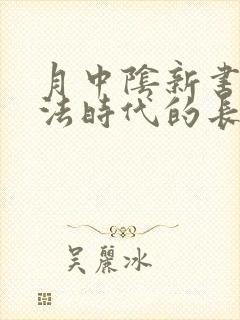 月中陰新書
法時代的長
吴麗冰